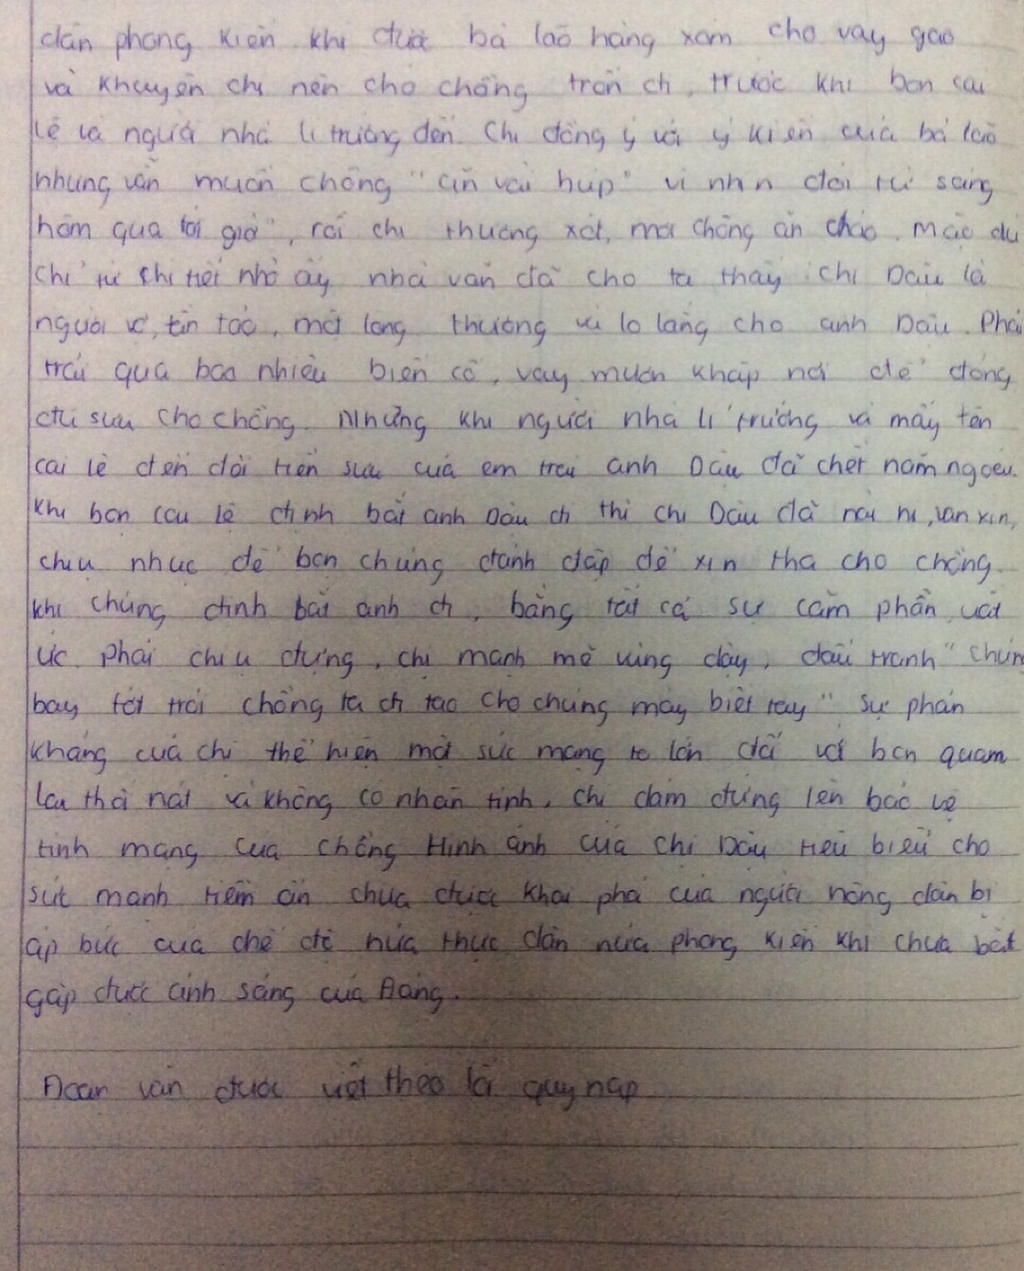 dân phong kiến. khi được bà lão hàng xóm cho vay gạo
và khuyên chị nên cho chồng trốn đi, trước khi bọn cai
lệ và người nhà lí trưởng đến. Chị đồng ý với ý kiến của bà lão
nhưng vẫn muốn chồng "ăn vài húp" vì nhịn đói từ sáng
hôm qua tới giờ", rồi chị thương xót, mời chồng ăn cháo. Mặc dù
chỉ từ chi tiết nhỏ ấy nhà văn đã cho ta thấy chị Dậu là
người vợ tần tảo, một lòng thương và lo lắng cho anh Dậu. Phải
trải qua bao nhiêu biến cố, vay mượn khắp nơi để đóng
đủ sưu cho chồng. Nhưng khi người nhà lí trưởng và mấy tên
cai lệ đến đòi tiền sưu của em trai anh Dậu đã chết năm ngoái.
Khi bọn cai lệ định bắt anh Dậu đi thì chị Dậu đã năn nỉ, van xin,
chịu nhục để bọn chúng đánh đập để xin tha cho chồng.
khi chúng định bắt anh đi, bằng tất cả sự căm phẫn, uất
ức phải chịu đựng, chị mạnh mẽ vùng dậy, đấu tranh "chúng
bay tới trói chồng ta đi tao cho chúng mày biết tay" sự phản
kháng của chị thể hiện một sức mạng to lớn đối với bọn quam
lại thối nát và không có nhân tính. chị dám đứng lên bảo vệ
tính mạng của chồng Hình ảnh của chị Dậu tiêu biểu cho
sức mạnh tiềm ẩn chưa được khai phá của người nông dân bị
áp bức của chế độ nửa thực dân nửa phong kiến khi chưa bắt
gặp được ánh sáng của Đảng.
Đoạn văn được viết theo lối quy nạp